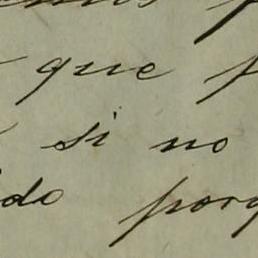 que
si no
do porq